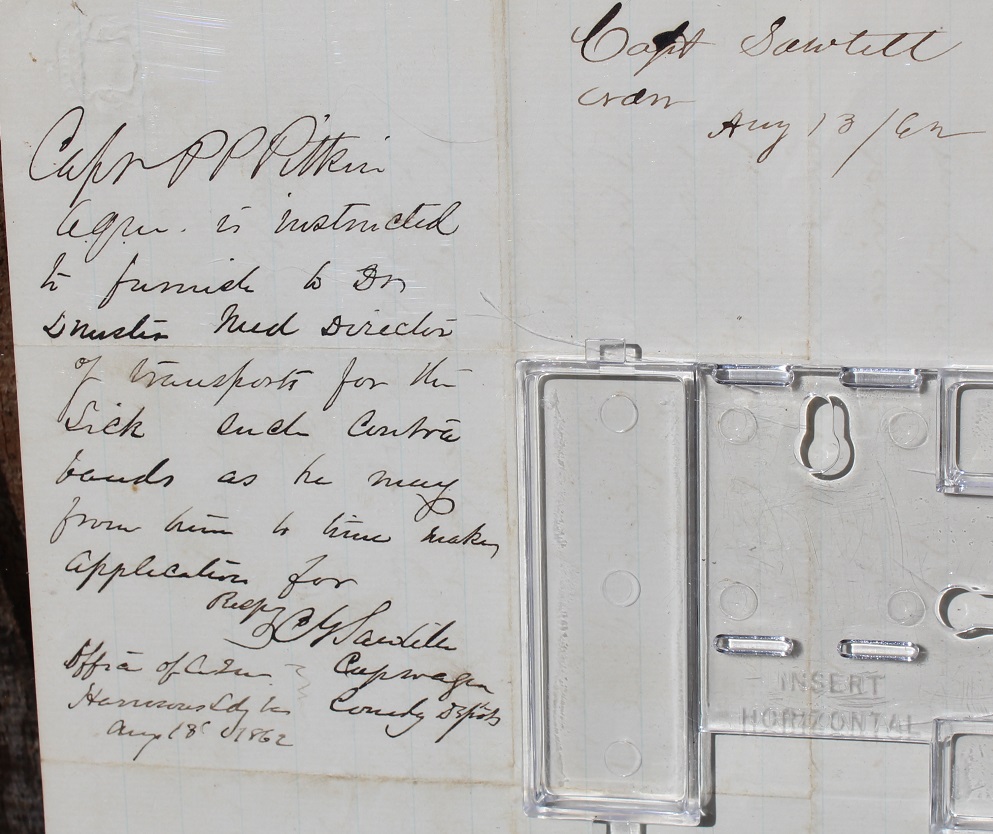 Capt P P Pitkin
aqm. is instructed
to furnish to Dr
Dunster Med Director
of transports for the
Sick such Contra
bands as he may
from time to time make
application for
Respy
C G Sawtelle
Office of
Capt & aqm
Harrisons Ldg Va
Comdg Depots
Aug 13 1862
Capt Sawtell
order
Aug 13 / 62
INSERT
HORIZONTAL